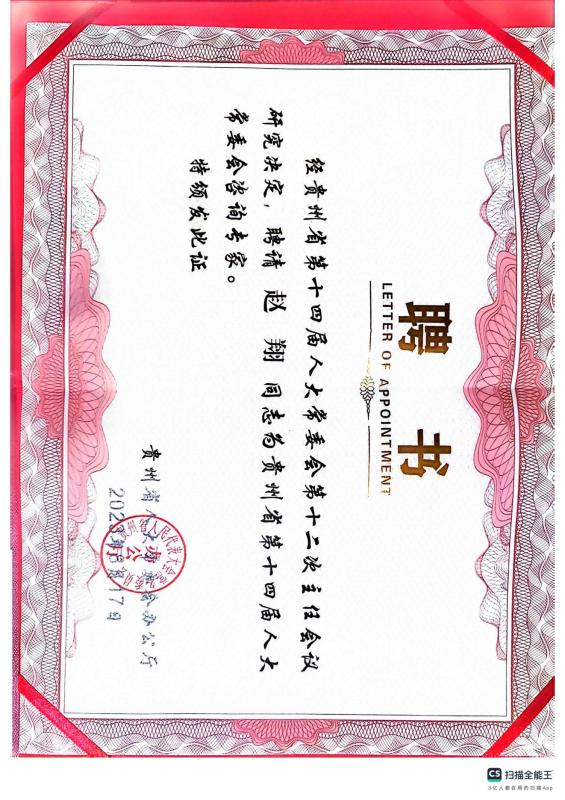 聘书
LETTER OF APPOINTMENT
经贵州省第十四届人大常委会第十二次主任会议
研究决定，聘请 赵翔 同志为贵州省第十四届人大
常委会咨询专家。
特颁发此证
贵州省人大常委会办公厅
2023年 月17日
CS 扫描全能王
3亿人都在用的扫描App